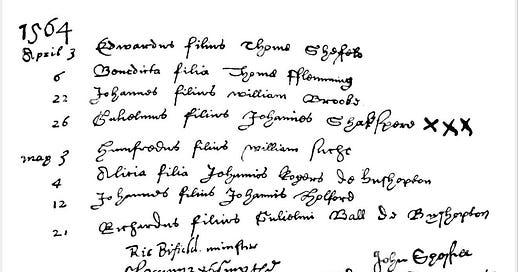 1564
April 3 Edwardus filius Thome Shefels
6 Benedicta filia Thome fflemming
22 Johannes filius William Brooke
26 Gulielmus filius Johannes Shakspere XXX
may 3 Humfredus filius William
4 Alicia filia Johannis Rogers de bushopton
12 Johannes filius Johannis Holford
21 Richardus filius Gulielmi Ball de Byshopton
Ric Bifield minister
John